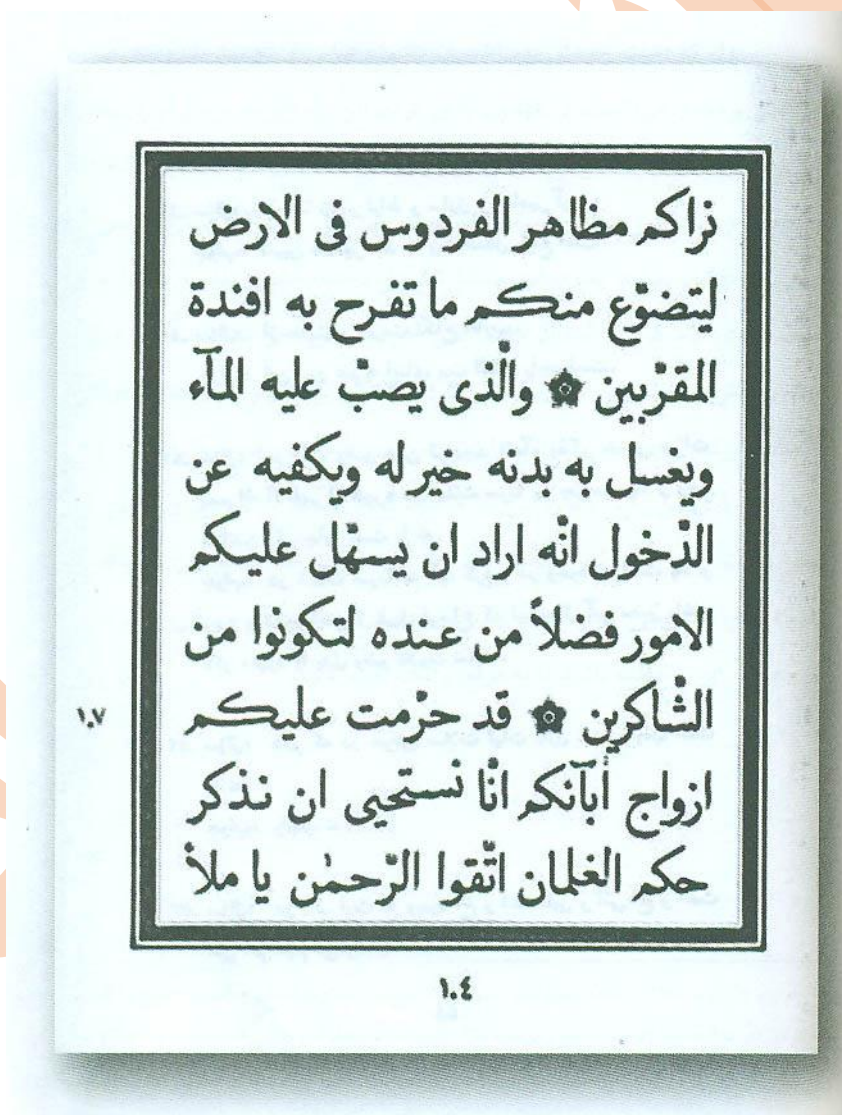 نراكم مظاهر الفردوس فى الارض
ليتضوّع منكم ما تفرح به افئدة
المقرّبين ۞ والّذى يصبّ عليه المآء
ويغسل به بدنه خير له ويكفيه عن
الدّخول انّه اراد ان يسهّل عليكم
الامور فضلاً من عنده لتكونوا من
١٠٧
الشّاكرين ۞ قد حرّمت عليكم
ازواج أبآئكم انّا نستحيى ان نذكر
حكم الغلمان اتّقوا الرّحمٰن يا ملأ
١٠٤